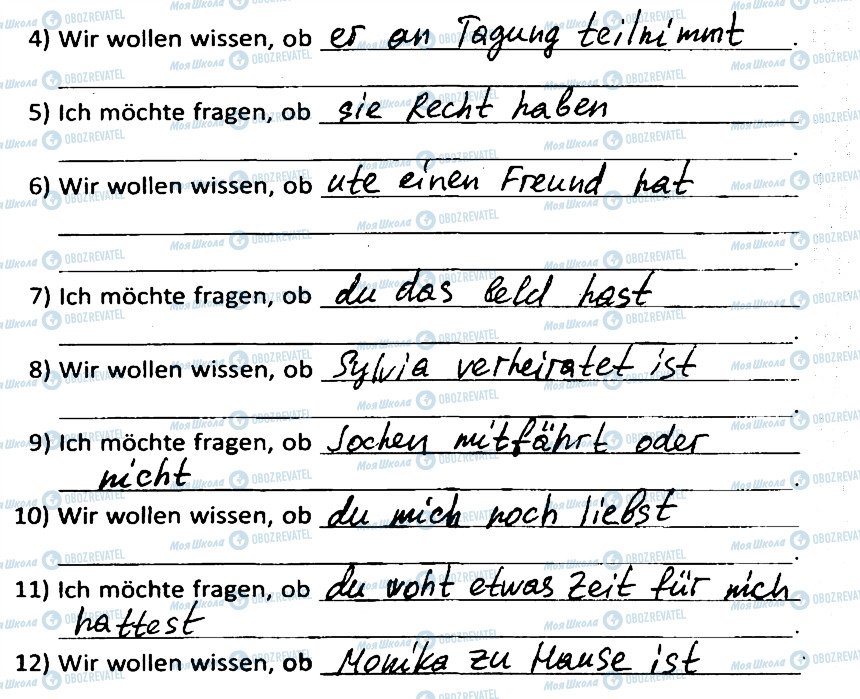 4) Wir wollen wissen, ob er an Tagung teilnimmt.
5) Ich möchte fragen, ob sie Recht haben
.
6) Wir wollen wissen, ob ute einen Freund hat
.
7) Ich möchte fragen, ob du das Geld hast
.
8) Wir wollen wissen, ob Sylvia verheiratet ist
.
9) Ich möchte fragen, ob Jochen mitfährt oder
nicht.
10) Wir wollen wissen, ob du mich noch liebst
.
11) Ich möchte fragen, ob du woht etwas Zeit für mich
hattest.
12) Wir wollen wissen, ob Monika zu Hause ist